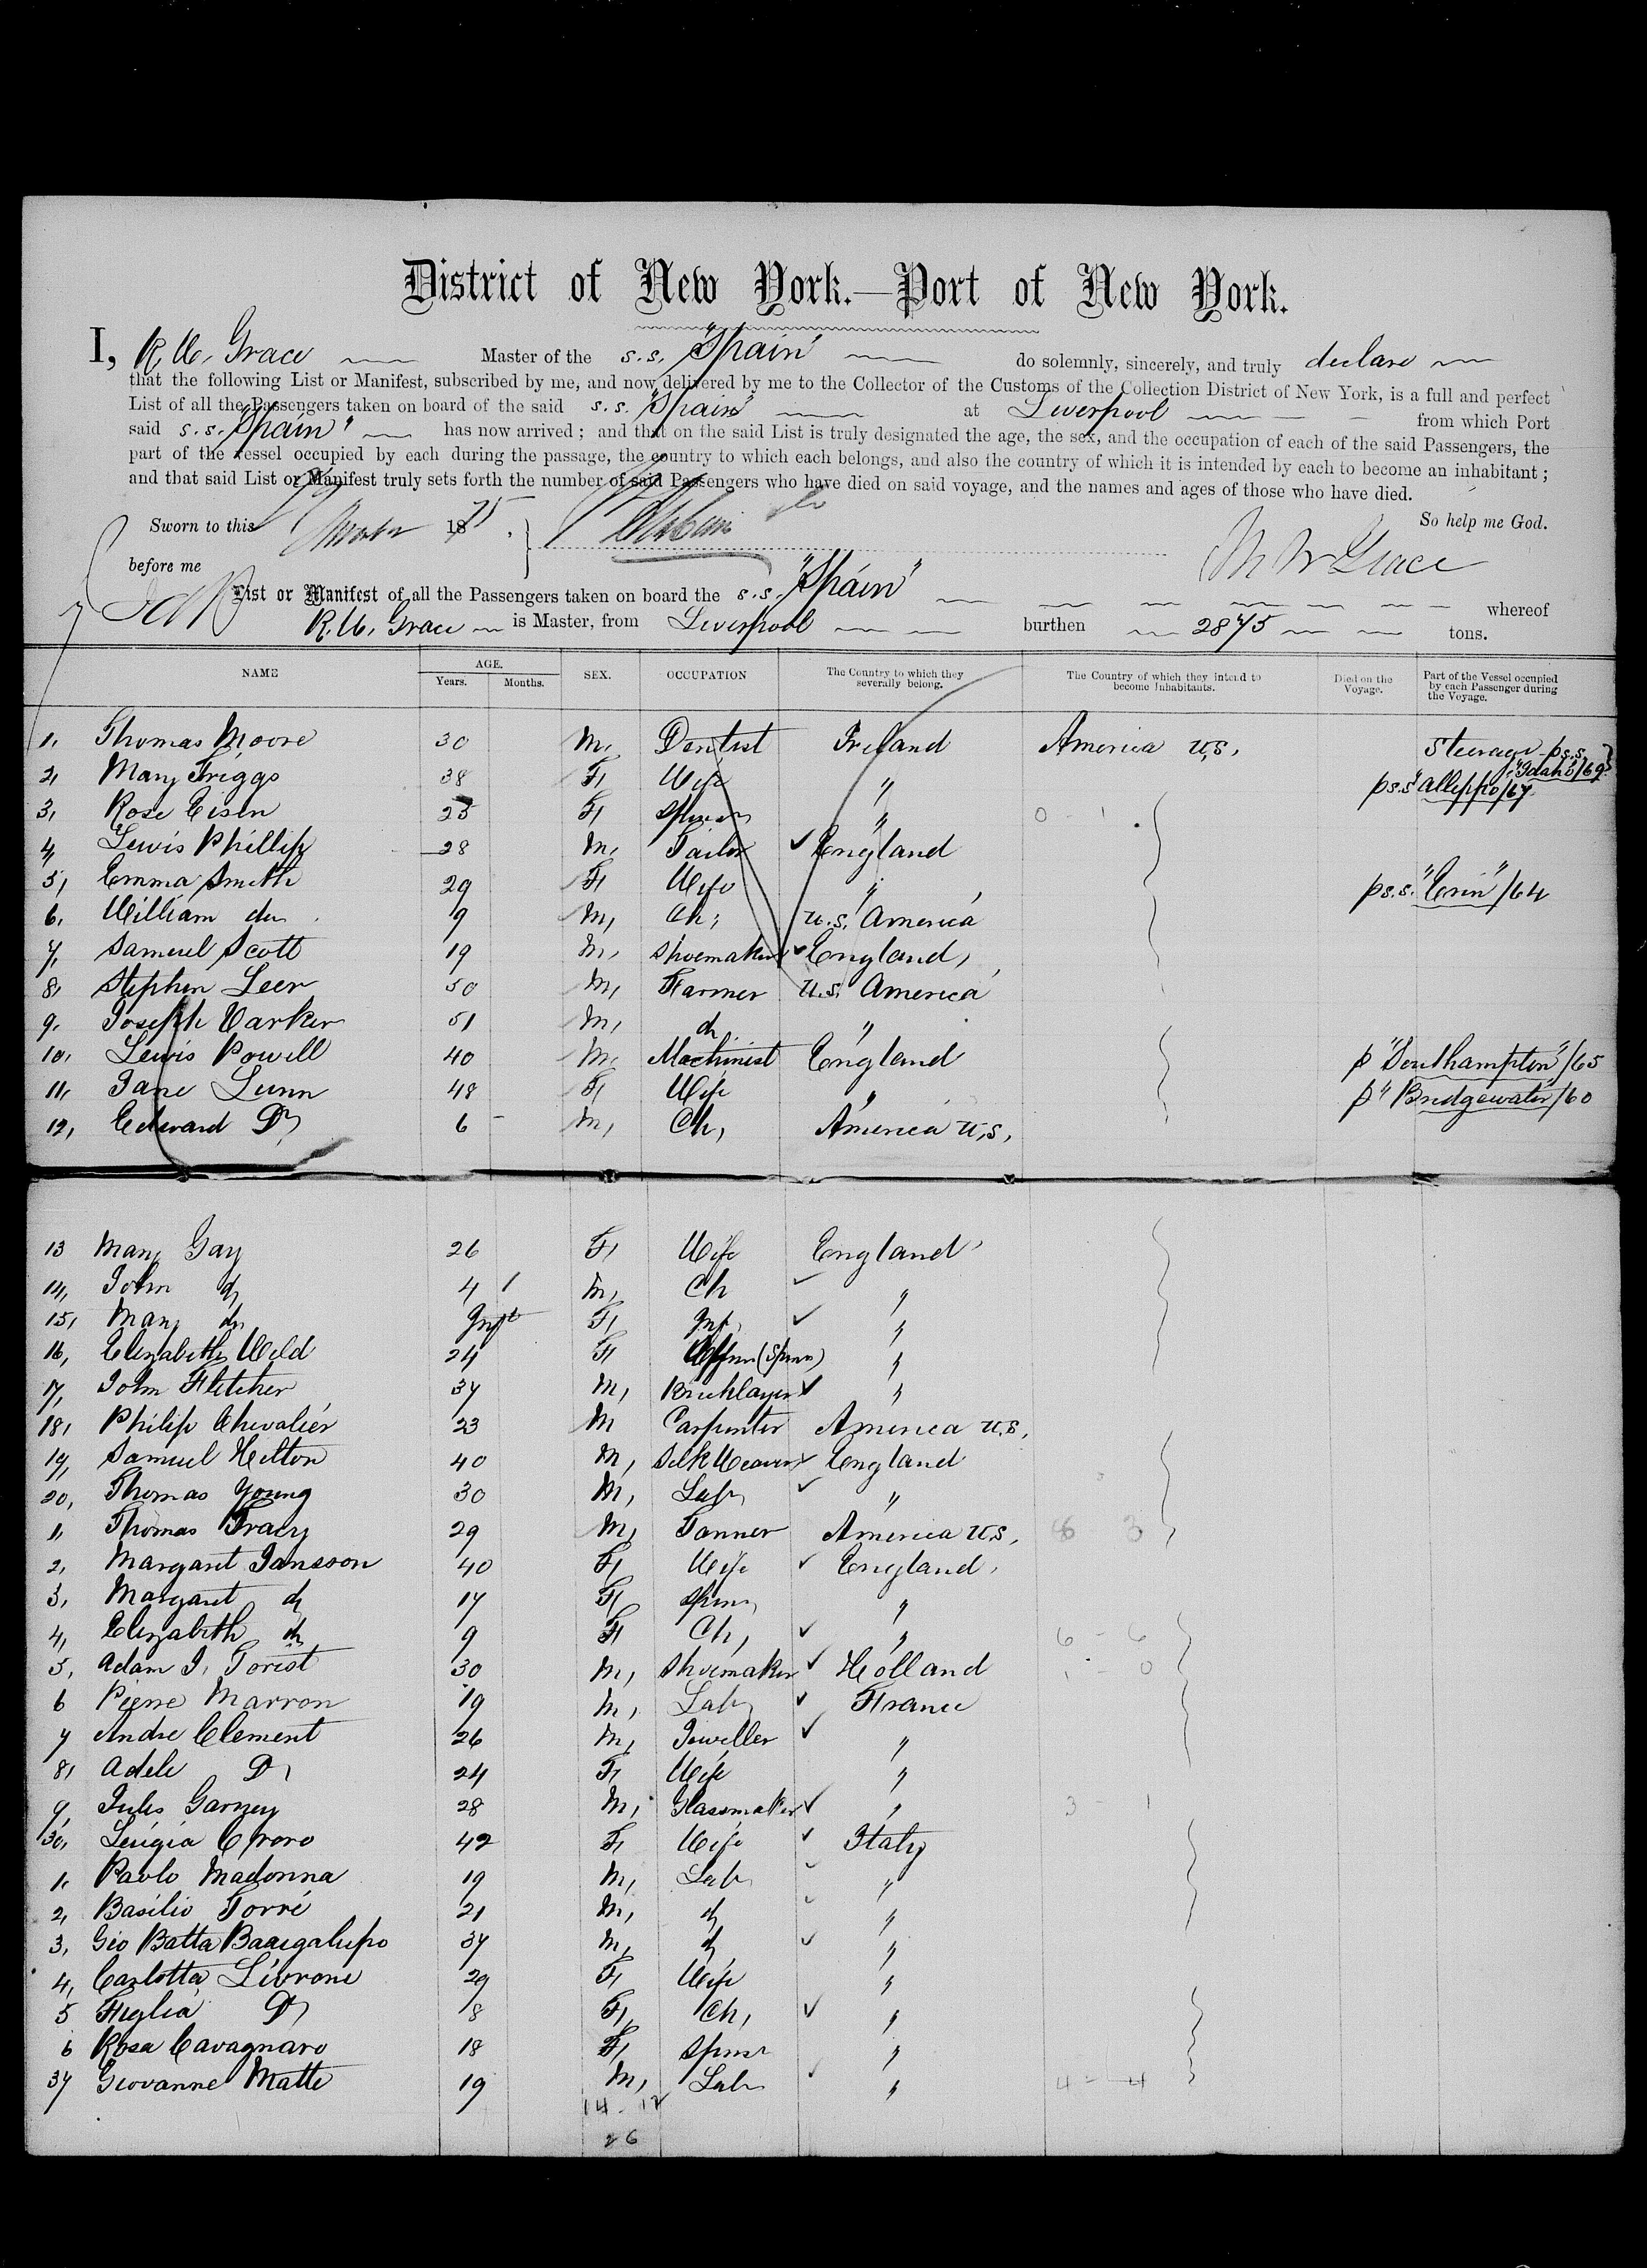 District of New York.—Port of New York.
I, R. W. Grace Master of the s.s. "Spain" do solemnly, sincerely, and truly declare
that the following List or Manifest, subscribed by me, and now delivered by me to the Collector of the Customs of the Collection District of New York, is a full and perfect
List of all the Passengers taken on board of the said s.s. "Spain" at Liverpool from which Port
said s.s. "Spain" has now arrived; and that on the said List is truly designated the age, the sex, and the occupation of each of the said Passengers, the
part of the vessel occupied by each during the passage, the country to which each belongs, and also the country of which it is intended by each to become an inhabitant;
and that said List or Manifest truly sets forth the number of said Passengers who have died on said voyage, and the names and ages of those who have died.
Sworn to this 1875. So help me God.
before me R W Grace
List or Manifest of all the Passengers taken on board the s.s. "Spain" whereof
R. W. Grace is Master, from Liverpool burthen 2875 tons.
NAME AGE. Years. Months. SEX. OCCUPATION The Country to which they severally belong. The Country of which they intend to become Inhabitants. Died on the Voyage. Part of the Vessel occupied by each Passenger during the Voyage.
1, Thomas Moore 30 M, Dentist Ireland America U.S, Steerage p s.s. "Idaho"/69
2, Mary Triggs 38 F, Wife " ps.s "Alleppo/67
3, Rose Eisen F, Spinr " 0 - 1
4, Lewis Phillips 28 M, Tailor ✓ England
5, Emma Smith 29 F, Wife " ps.s. "Erin"/64
6, William do 9 M, Ch, U.S. America
7, Samuel Scott 19 M, Shoemaker ✓ England,
8, Stephen Leer 50 M, Farmer U.S. America
9, Joseph Varker 51 M, do "
10, Lewis Powell 40 M, Machinist England p "Southampton"/65
11, Jane Lunn 48 F, Wife " p "Bridgewater/60
12, Edward Do 6 - M, Ch, America U.S,
13 Mary Gay 26 F, Wife England
14, John do 4 1 M, Ch ✓ "
15, Mary do Inft F, Inf, ✓ "
16, Elizabeth Weld 24 F (Spinr) "
17, John Fletcher 37 M, Bricklayer ✓ "
18, Philip Chevalier 23 M Carpenter America U.S,
19, Samuel Hilton 40 M, Silk Weaver ✓ England
20, Thomas Young 30 M, Labr ✓ "
1, Thomas Tracy 29 M, Tanner America U.S, 3
2, Margaret Jansson 40 F, Wife ✓ England,
3, Margaret do 17 F, Spinr "
4, Elizabeth do 9 F Ch, ✓ " 6 - 6
5, Adam J. Torist 30 M, Shoemaker ✓ Holland 1 - 0
6 Pierre Marron 19 M, Labr ✓ France
7 Andre Clement 26 M, Jeweller ✓ "
8, Adele Do 24 F, Wife "
9, Jules Garney 28 M, Glassmaker ✓ " 3 - 1
30, Leugia Croro 42 F, Wife ✓ Italy
1, Paolo Madonna 19 M, Labr ✓ "
2, Basilio Torré 21 M, do ✓ "
3, Gio Batta Bacigalupo 37 M, do ✓ "
4, Carlotta Livrone 29 F, Wife "
5 Figlia Do 8 F, Ch, ✓ "
6 Rosa Cavagnaro 18 F, Spinr "
37 Giovanne Matte 19 M, Labr ✓ " 4 - 4
14 - 12
26